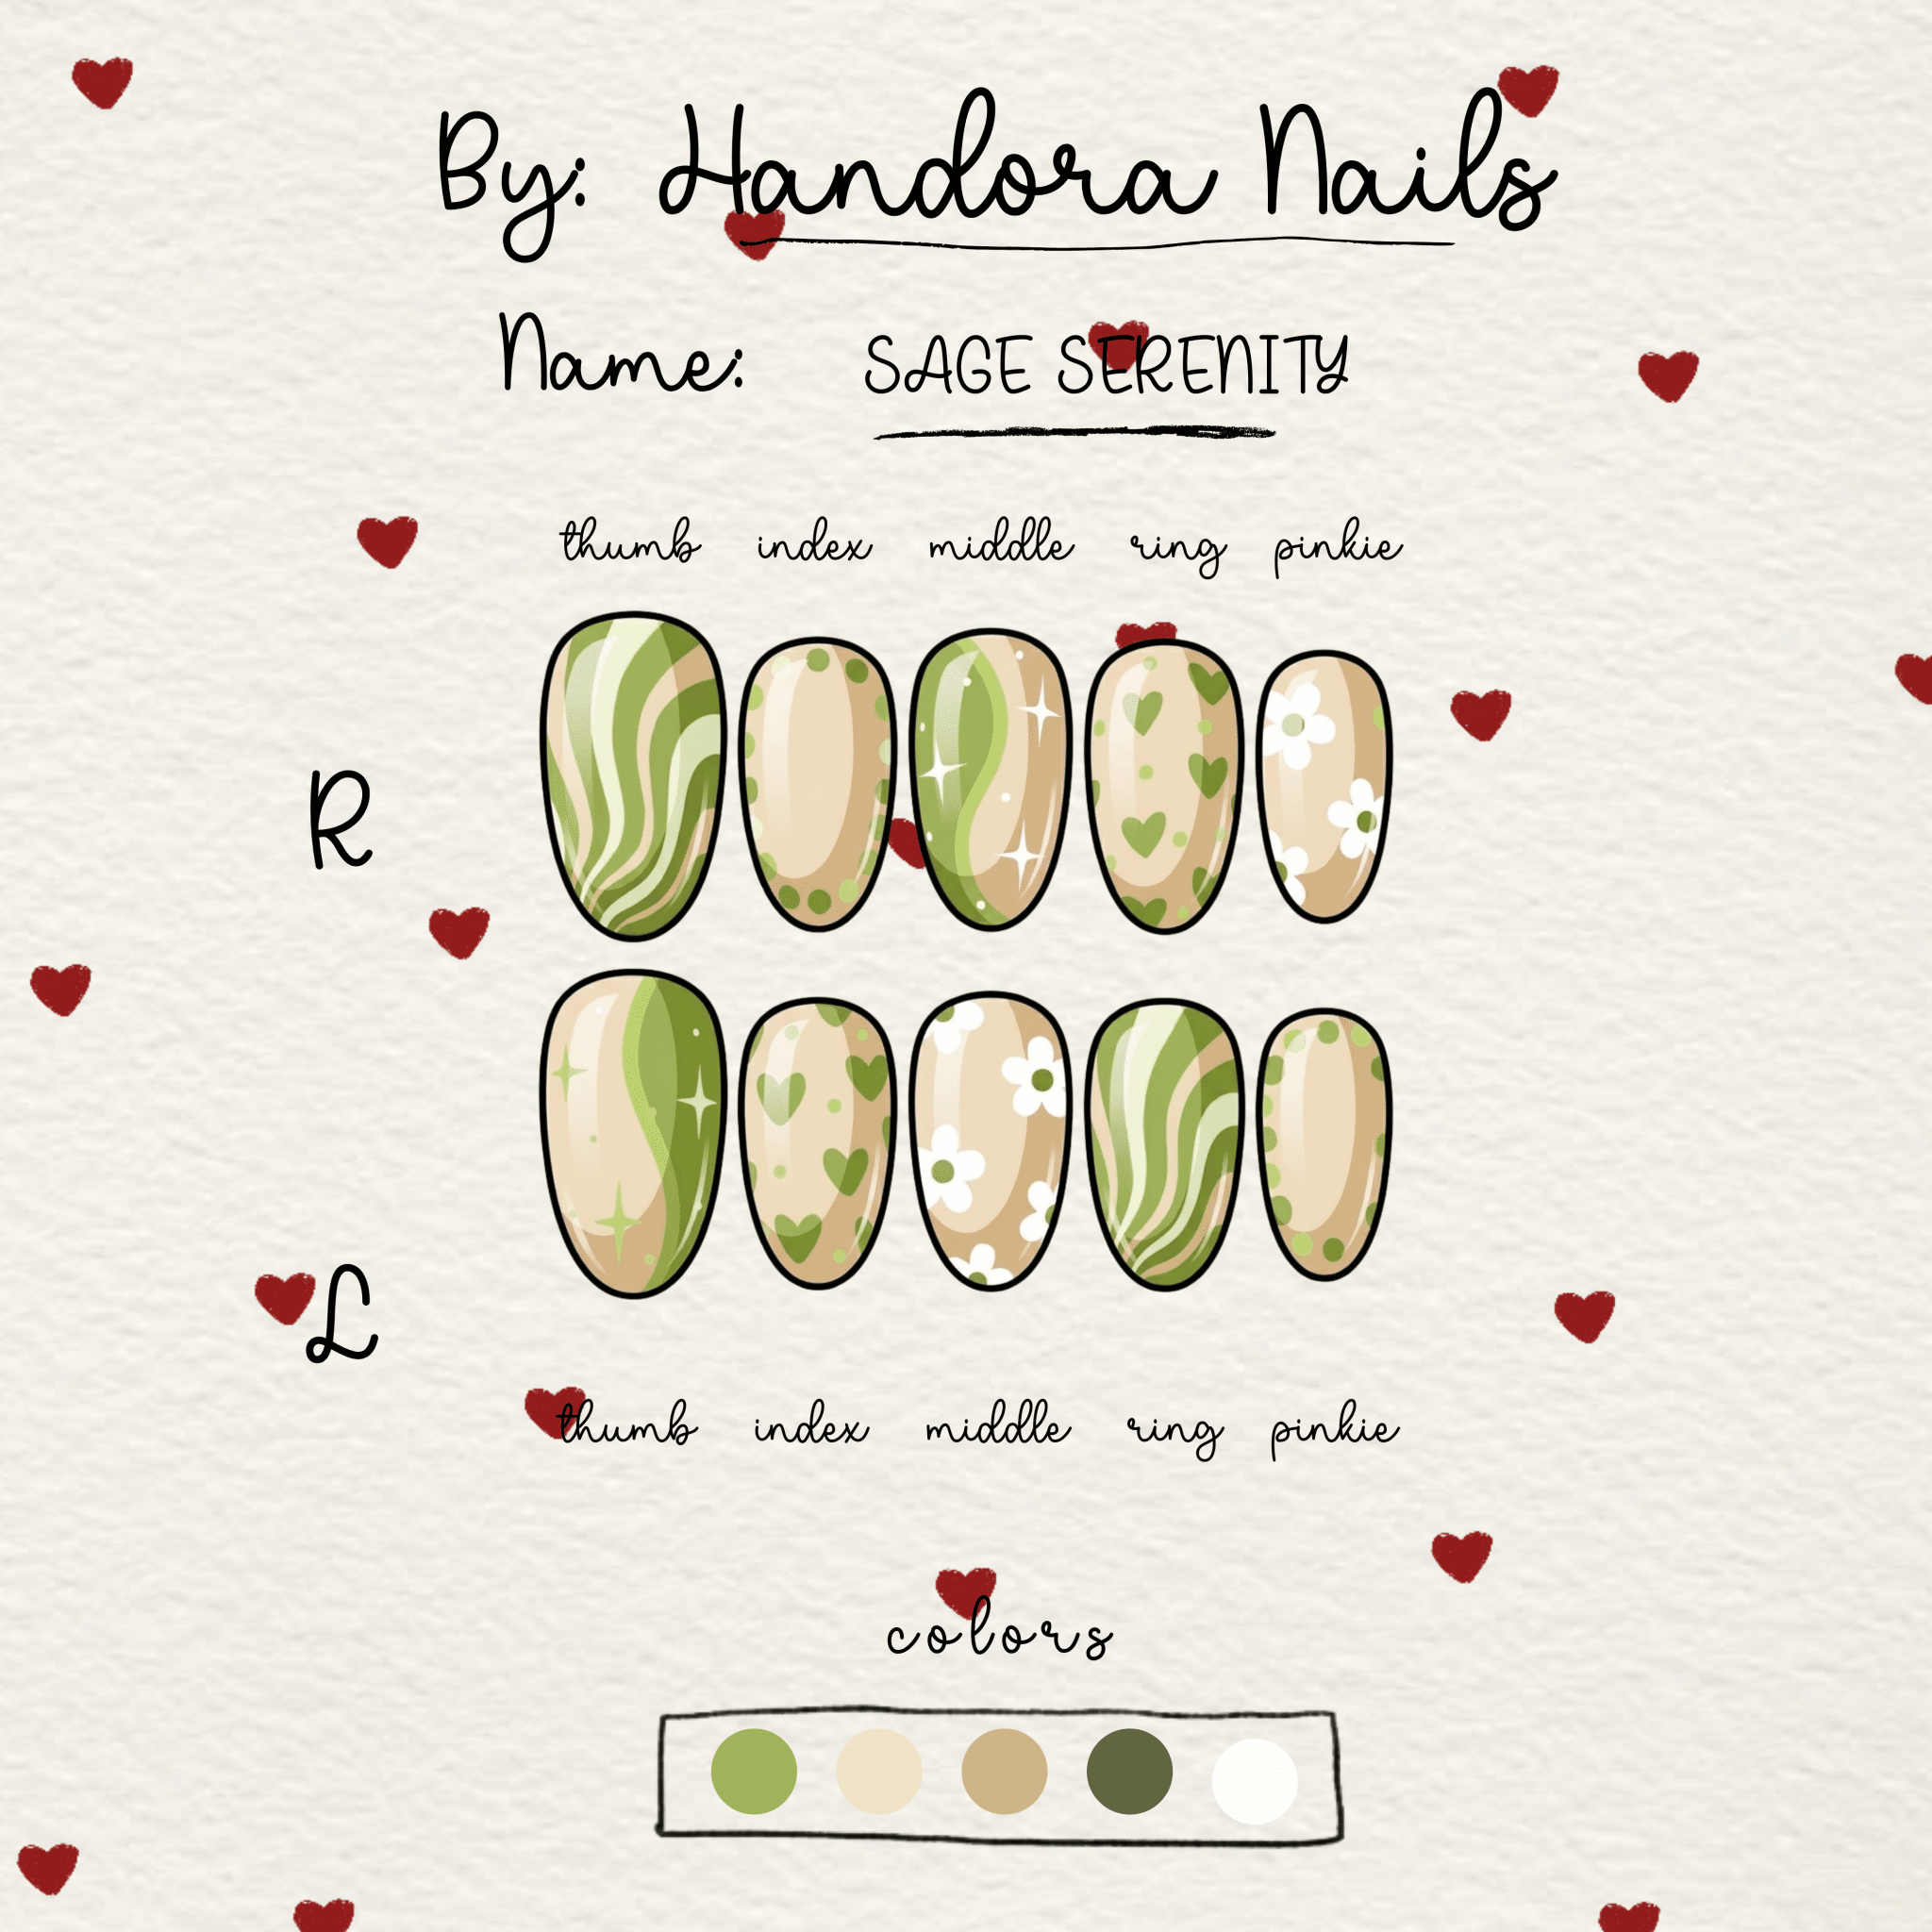 By: Handora Nails
Name: SAGE SERENITY
thumb index middle ring pinkie
R
L
thumb index middle ring pinkie
colors